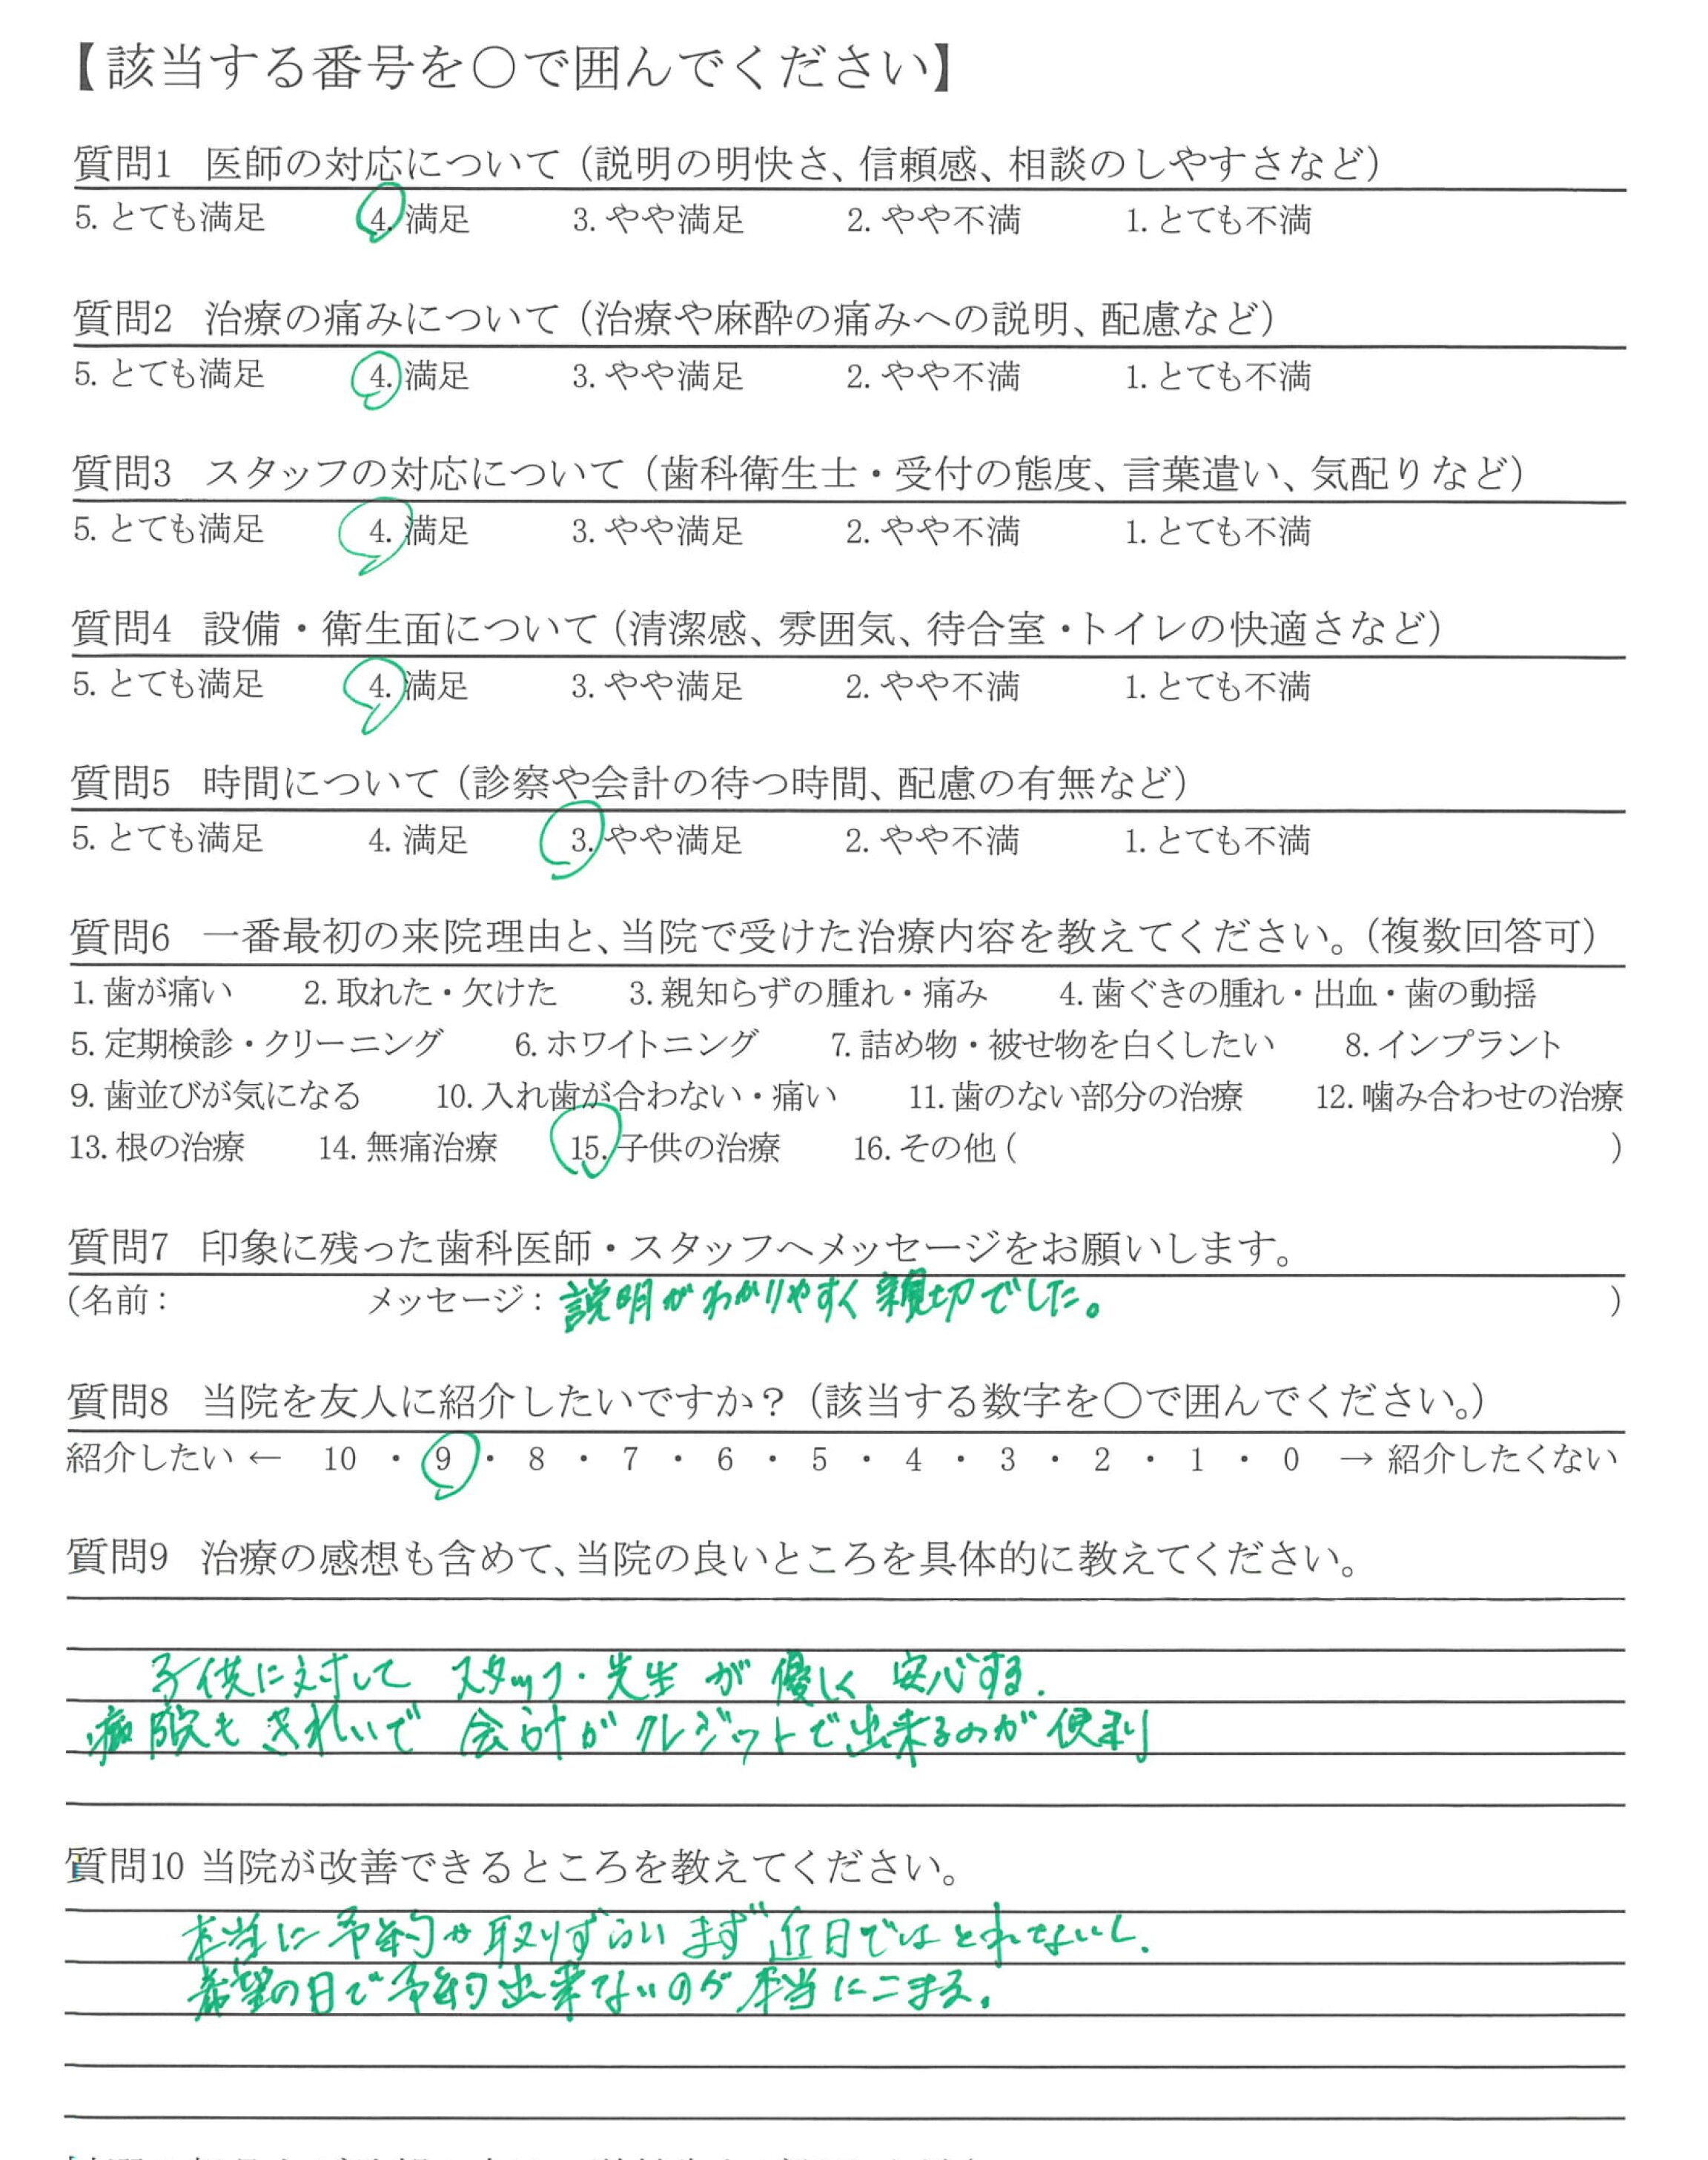 【該当する番号を〇で囲んでください】
質問1 医師の対応について（説明の明快さ、信頼感、相談のしやすさなど）
5. とても満足 4. 満足 3. やや満足 2. やや不満 1. とても不満
質問2 治療の痛みについて（治療や麻酔の痛みへの説明、配慮など）
5. とても満足 4. 満足 3. やや満足 2. やや不満 1. とても不満
質問3 スタッフの対応について（歯科衛生士・受付の態度、言葉遣い、気配りなど）
5. とても満足 4. 満足 3. やや満足 2. やや不満 1. とても不満
質問4 設備・衛生面について（清潔感、雰囲気、待合室・トイレの快適さなど）
5. とても満足 4. 満足 3. やや満足 2. やや不満 1. とても不満
質問5 時間について（診察や会計の待つ時間、配慮の有無など）
5. とても満足 4. 満足 3. やや満足 2. やや不満 1. とても不満
質問6 一番最初の来院理由と、当院で受けた治療内容を教えてください。（複数回答可）
1. 歯が痛い 2. 取れた・欠けた 3. 親知らずの腫れ・痛み 4. 歯ぐきの腫れ・出血・歯の動揺
5. 定期検診・クリーニング 6. ホワイトニング 7. 詰め物・被せ物を白くしたい 8. インプラント
9. 歯並びが気になる 10. 入れ歯が合わない・痛い 11. 歯のない部分の治療 12. 噛み合わせの治療
13. 根の治療 14. 無痛治療 15. 子供の治療 16. その他 ( )
質問7 印象に残った歯科医師・スタッフへメッセージをお願いします。
(名前： メッセージ：説明がわかりやすく親切でした。 )
質問8 当院を友人に紹介したいですか？（該当する数字を〇で囲んでください。）
紹介したい ← 10 ・ 9 ・ 8 ・ 7 ・ 6 ・ 5 ・ 4 ・ 3 ・ 2 ・ 1 ・ 0 → 紹介したくない
質問9 治療の感想も含めて、当院の良いところを具体的に教えてください。
子供に対して スタッフ・先生が優しく 安心する.
病院もきれいで 会計がクレジットで出来るのが便利
質問10 当院が改善できるところを教えてください。
本当に予約が取りずらい まず近日ではとれないし.
希望の日で予約出来ないのが本当にこまる。